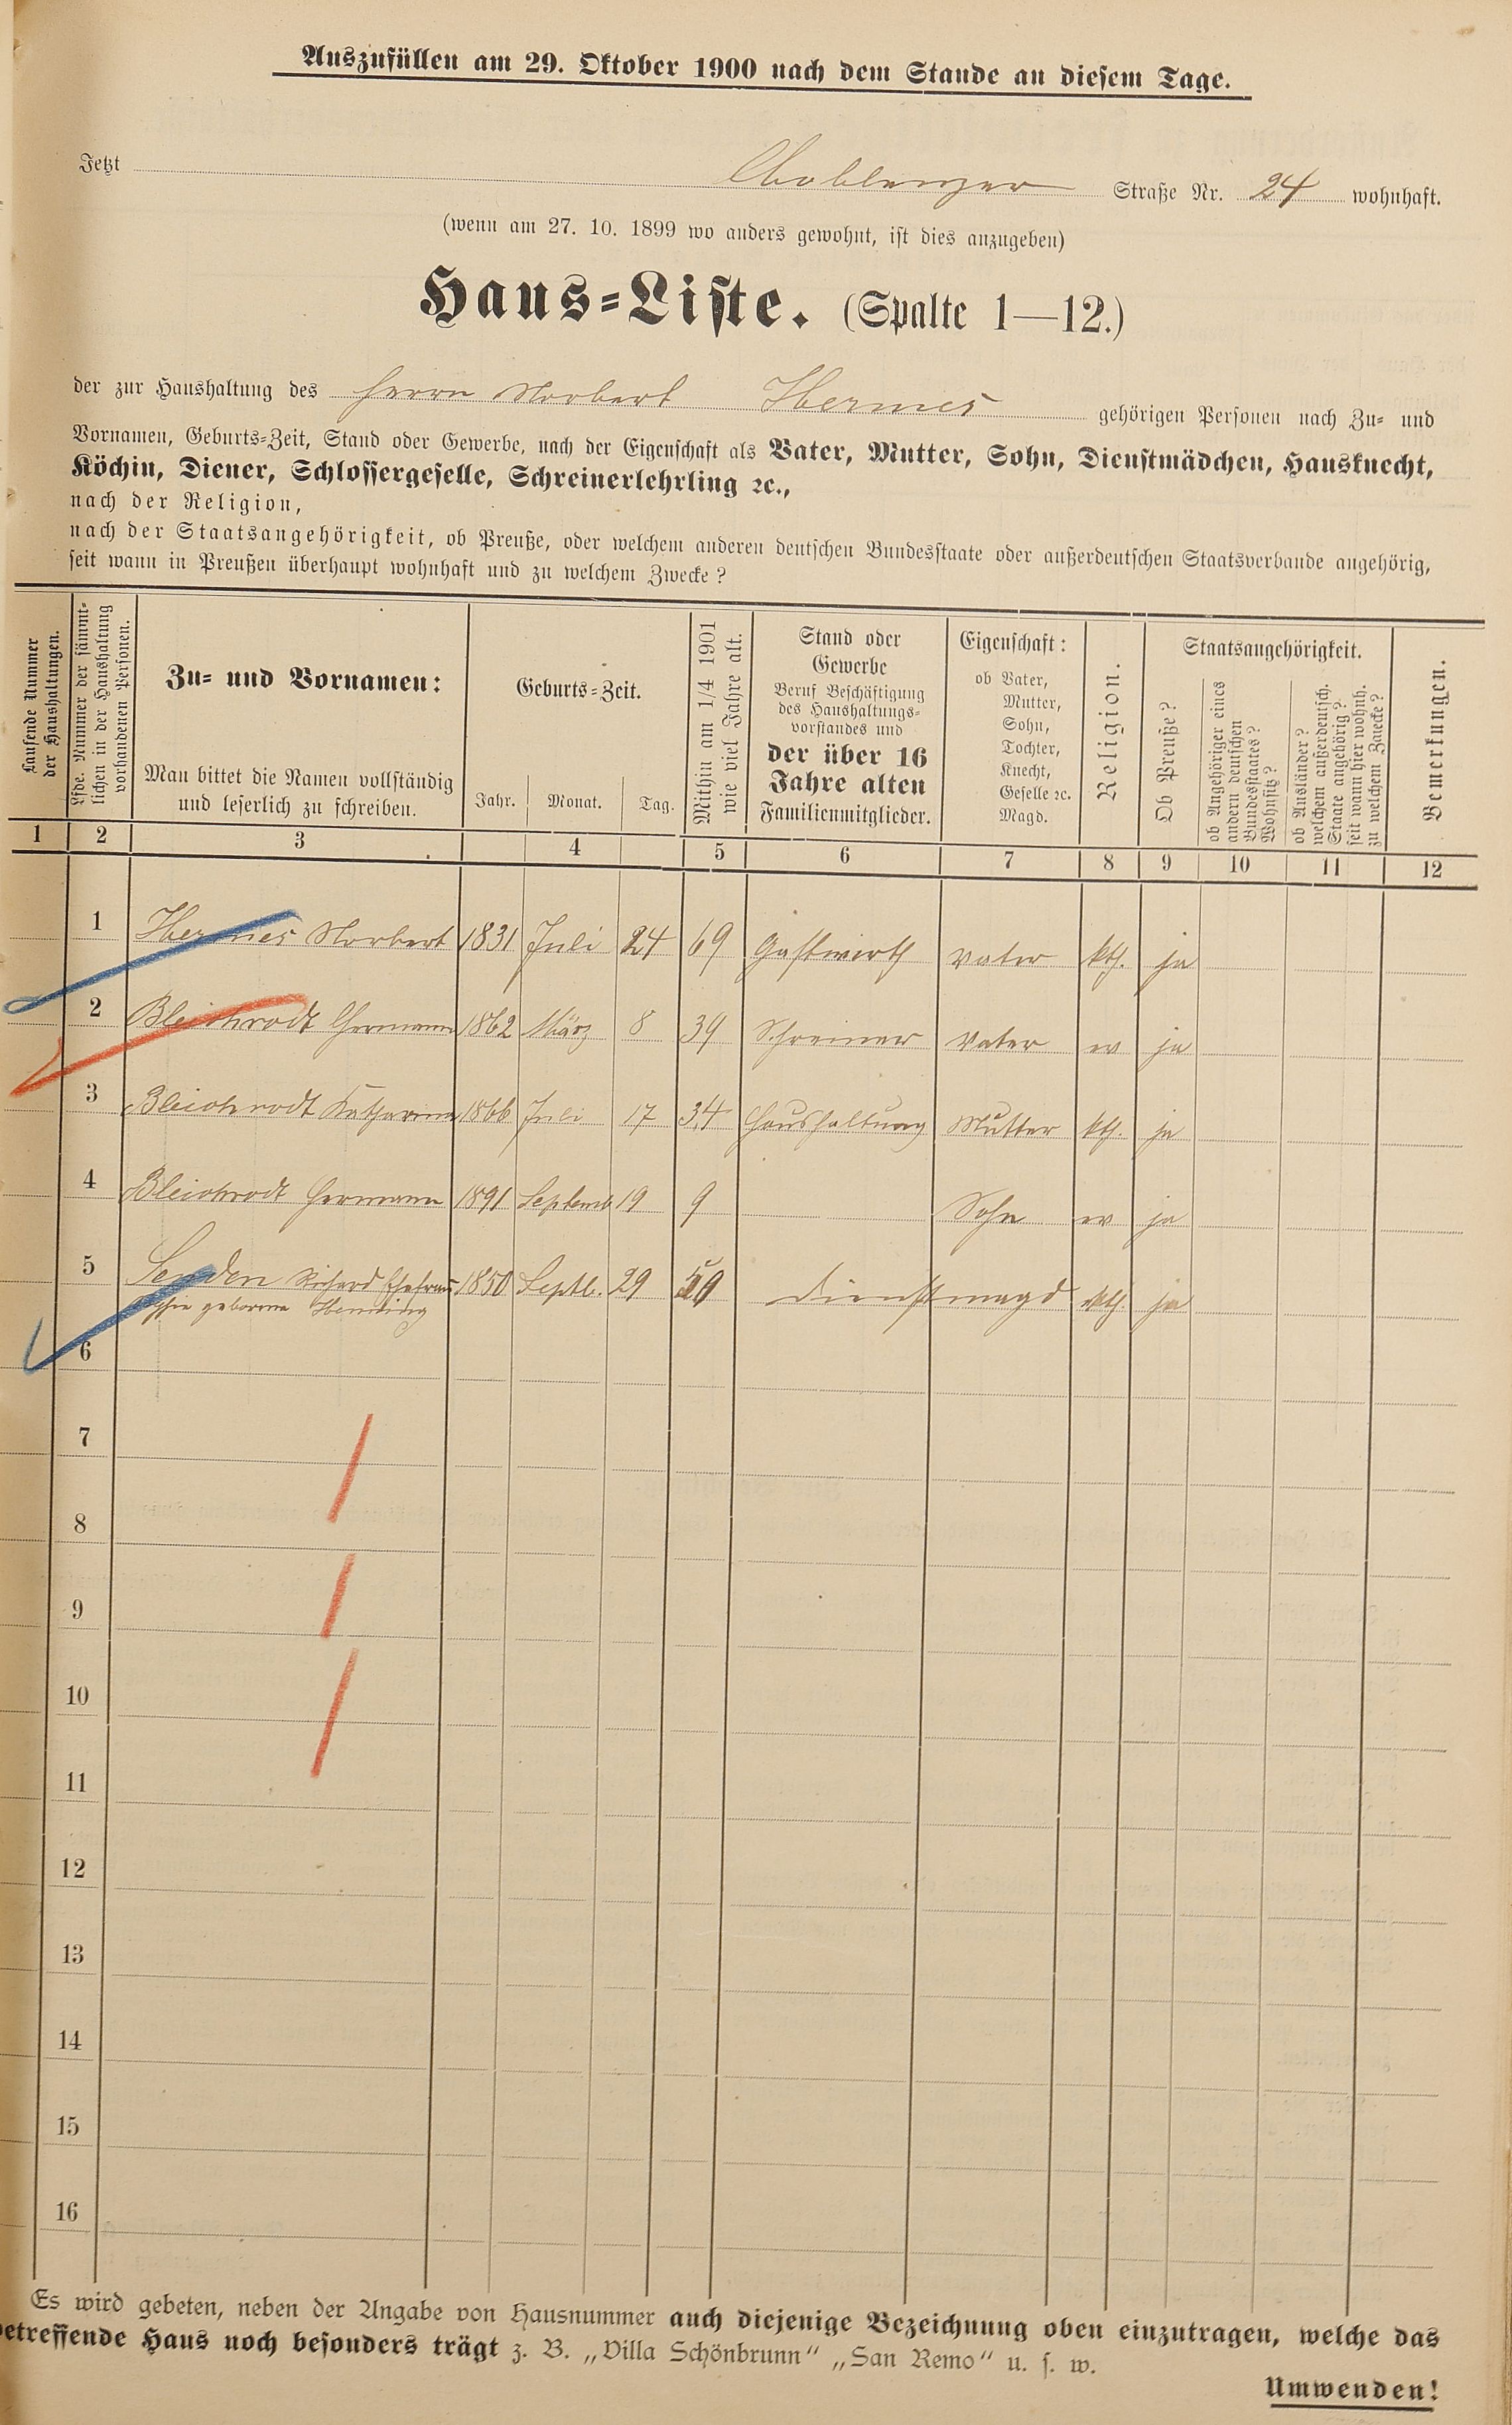 Auszufüllen am 29. Oktober 1900 nach dem Stande an diesem Tage.
Jetzt Coblenzer Straße Nr. 24 wohnhaft.
(wenn am 27. 10. 1899 wo anders gewohnt, ist dies anzugeben)
Haus-Liste. (Spalte 1—12.)
der zur Haushaltung des Herrn Norbert Hermes gehörigen Personen nach Zu- und
Vornamen, Geburts-Zeit, Stand oder Gewerbe, nach der Eigenschaft als Vater, Mutter, Sohn, Dienstmädchen, Hausknecht,
Köchin, Diener, Schlossergeselle, Schreinerlehrling ꝛc.,
nach der Religion,
nach der Staatsangehörigkeit, ob Preuße, oder welchem anderen deutschen Bundesstaate oder außerdeutschen Staatsverbande angehörig,
seit wann in Preußen überhaupt wohnhaft und zu welchem Zwecke?
Laufende Nummer
der Haushaltungen.
Lfde. Nummer der sämmt-
lichen in der Haushaltung
vorhandenen Personen.
Zu- und Vornamen:
Man bittet die Namen vollständig
und leserlich zu schreiben.
Geburts-Zeit.
Jahr. Monat. Tag.
Mithin am 1/4 1901
wie viel Jahre alt.
Stand oder
Gewerbe
Beruf Beschäftigung
des Haushaltungs-
vorstandes und
der über 16
Jahre alten
Familienmitglieder.
Eigenschaft:
ob Vater,
Mutter,
Sohn,
Tochter,
Knecht,
Geselle ꝛc.
Magd.
Religion.
Staatsangehörigkeit.
Ob Preuße?
ob Angehöriger eines
andern deutschen
Bundesstaates?
Wohnsitz?
ob Ausländer?
welchem außerdeutsch.
Staate angehörig?
seit wann hier wohnh.
zu welchem Zwecke?
Bemerkungen.
1 2 3 4 5 6 7 8 9 10 11 12
1 Hermes Norbert 1831 Juli 24 69 Gastwirth Vater kth. ja
2 Bleichrodt Hermann 1862 März 8 39 Schreiner Vater ev ja
3 Bleichrodt Katharina 1866 Juli 17 34 Haushaltung Mutter kth. ja
4 Bleichrodt Hermann 1891 Septemb 19 9 Sohn ev ja
5 Senden Richard Ehefrau 1850 Septb. 29 50 Dienstmagd kth. ja
geborene Henning
6
7
8
9
10
11
12
13
14
15
16
Es wird gebeten, neben der Angabe von Hausnummer auch diejenige Bezeichnung oben einzutragen, welche das
betreffende Haus noch besonders trägt z. B. „Villa Schönbrunn“ „San Remo“ u. s. w.
Umwenden!